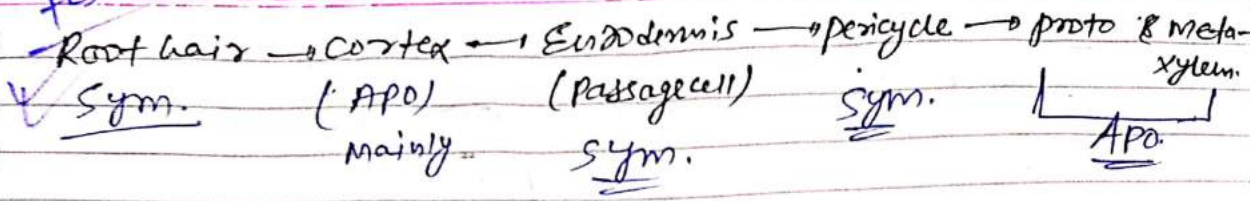 Root hair → cortex → Endodermis → pericycle → proto & meta-
xylem.
Sym. (APO) (Passage cell) Sym.
Mainly.. Sym. APO.